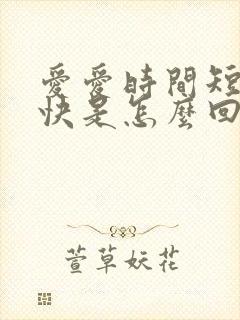 愛愛時間短
快是怎麼回
萱草妖花